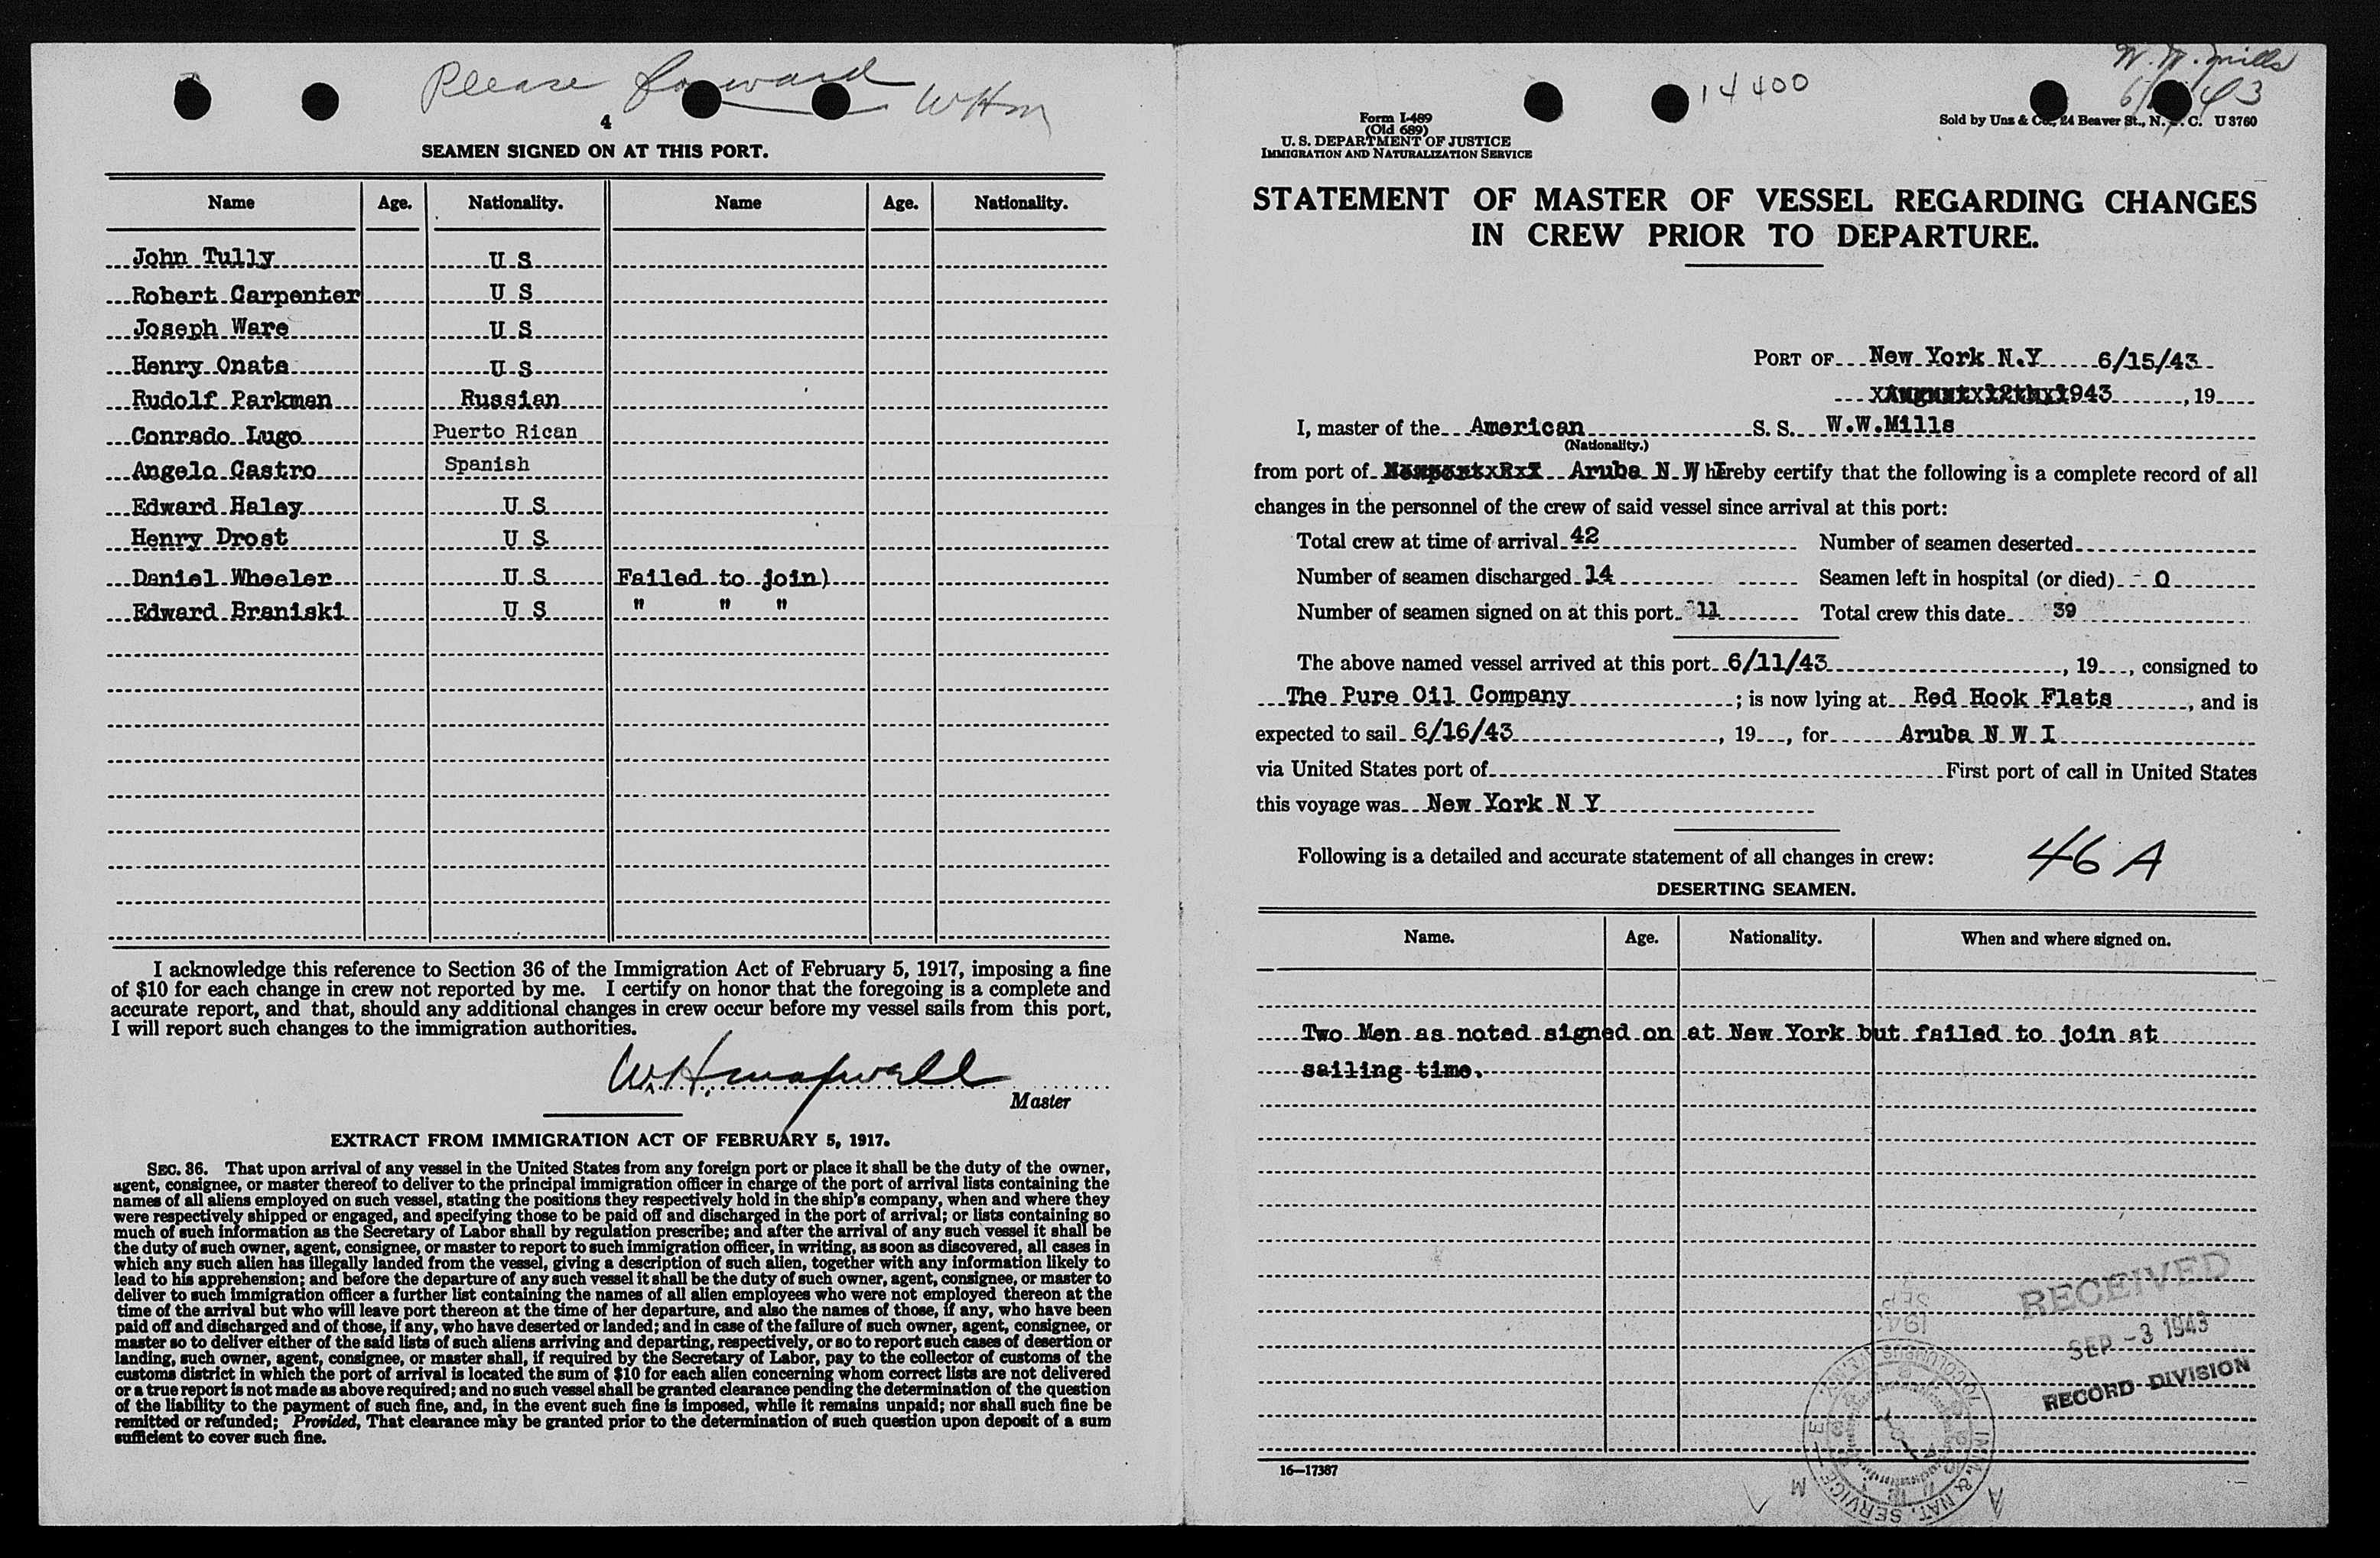 Please forward WHM
4
SEAMEN SIGNED ON AT THIS PORT.
Name Age. Nationality. Name Age. Nationality.
John Tully U S
Robert Carpenter U S
Joseph Ware U S
Henry Onate U S
Rudolf Parkman Russian
Conrado Lugo Puerto Rican
Angelo Castro Spanish
Edward Haley U S
Henry Drost U S
Daniel Wheeler U S Failed to join)
Edward Braniski U S " " "
I acknowledge this reference to Section 36 of the Immigration Act of February 5, 1917, imposing a fine
of $10 for each change in crew not reported by me. I certify on honor that the foregoing is a complete and
accurate report, and that, should any additional changes in crew occur before my vessel sails from this port,
I will report such changes to the immigration authorities.
Master
EXTRACT FROM IMMIGRATION ACT OF FEBRUARY 5, 1917.
SEC. 36. That upon arrival of any vessel in the United States from any foreign port or place it shall be the duty of the owner,
agent, consignee, or master thereof to deliver to the principal immigration officer in charge of the port of arrival lists containing the
names of all aliens employed on such vessel, stating the positions they respectively hold in the ship's company, when and where they
were respectively shipped or engaged, and specifying those to be paid off and discharged in the port of arrival; or lists containing so
much of such information as the Secretary of Labor shall by regulation prescribe; and after the arrival of any such vessel it shall be
the duty of such owner, agent, consignee, or master to report to such immigration officer, in writing, as soon as discovered, all cases in
which any such alien has illegally landed from the vessel, giving a description of such alien, together with any information likely to
lead to his apprehension; and before the departure of any such vessel it shall be the duty of such owner, agent, consignee, or master to
deliver to such immigration officer a further list containing the names of all alien employees who were not employed thereon at the
time of the arrival but who will leave port thereon at the time of her departure, and also the names of those, if any, who have been
paid off and discharged and of those, if any, who have deserted or landed; and in case of the failure of such owner, agent, consignee, or
master so to deliver either of the said lists of such aliens arriving and departing, respectively, or so to report such cases of desertion or
landing, such owner, agent, consignee, or master shall, if required by the Secretary of Labor, pay to the collector of customs of the
customs district in which the port of arrival is located the sum of $10 for each alien concerning whom correct lists are not delivered
or a true report is not made as above required; and no such vessel shall be granted clearance pending the determination of the question
of the liability to the payment of such fine, and, in the event such fine is imposed, while it remains unpaid; nor shall such fine be
remitted or refunded; Provided, That clearance may be granted prior to the determination of such question upon deposit of a sum
sufficient to cover such fine.
W. W. Mills
14400
Form I-489
(Old 689)
U. S. DEPARTMENT OF JUSTICE
IMMIGRATION AND NATURALIZATION SERVICE
Sold by Unz & Co., 24 Beaver St., N. Y. C. U 3760
STATEMENT OF MASTER OF VESSEL REGARDING CHANGES
IN CREW PRIOR TO DEPARTURE.
PORT OF New York N.Y 6/15/43
1943, 19
I, master of the American S. S. W.W.Mills
(Nationality.)
from port of Aruba N W I hereby certify that the following is a complete record of all
changes in the personnel of the crew of said vessel since arrival at this port:
Total crew at time of arrival 42 Number of seamen deserted
Number of seamen discharged 14 Seamen left in hospital (or died) - 0
Number of seamen signed on at this port 11 Total crew this date 39
The above named vessel arrived at this port 6/11/43, 19, consigned to
The Pure Oil Company; is now lying at Red Hook Flats, and is
expected to sail 6/16/43, 19, for Aruba N W I
via United States port of First port of call in United States
this voyage was New York N Y
Following is a detailed and accurate statement of all changes in crew:
46 A
DESERTING SEAMEN.
Name. Age. Nationality. When and where signed on.
Two Men as noted signed on at New York but failed to join at
sailing time.
RECEIVED
SEP -3 1943
RECORD DIVISION
16—17387